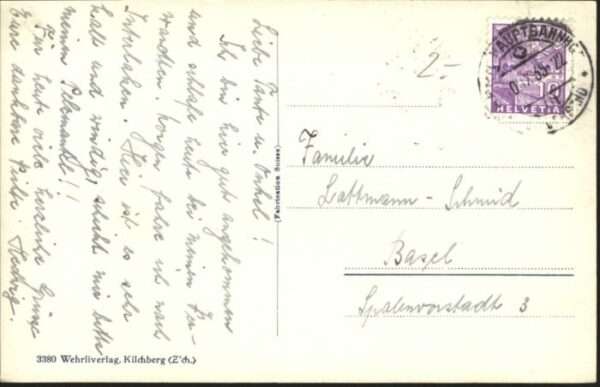 Liebe Tante u. Onkel!
Ich bin hier gut angekommen
und schlafe heute bei meinen Ver-
wandten. Morgen fahre ich nach
Interlaken. Hier ist es sehr
kalt und windig, schickt mir bitte
meinen Pelzmantel!!
Für heute viele herzliche Grüsse
Eure dankbare Hedwig.
(Fabrication Suisse)
2.-
HAUPTBAHNHOF
10
HELVETIA
Familie
Lattmann-Schmid
Basel
Spalenvorstadt 3
3380 Wehrliverlag, Kilchberg (Z'ch.)